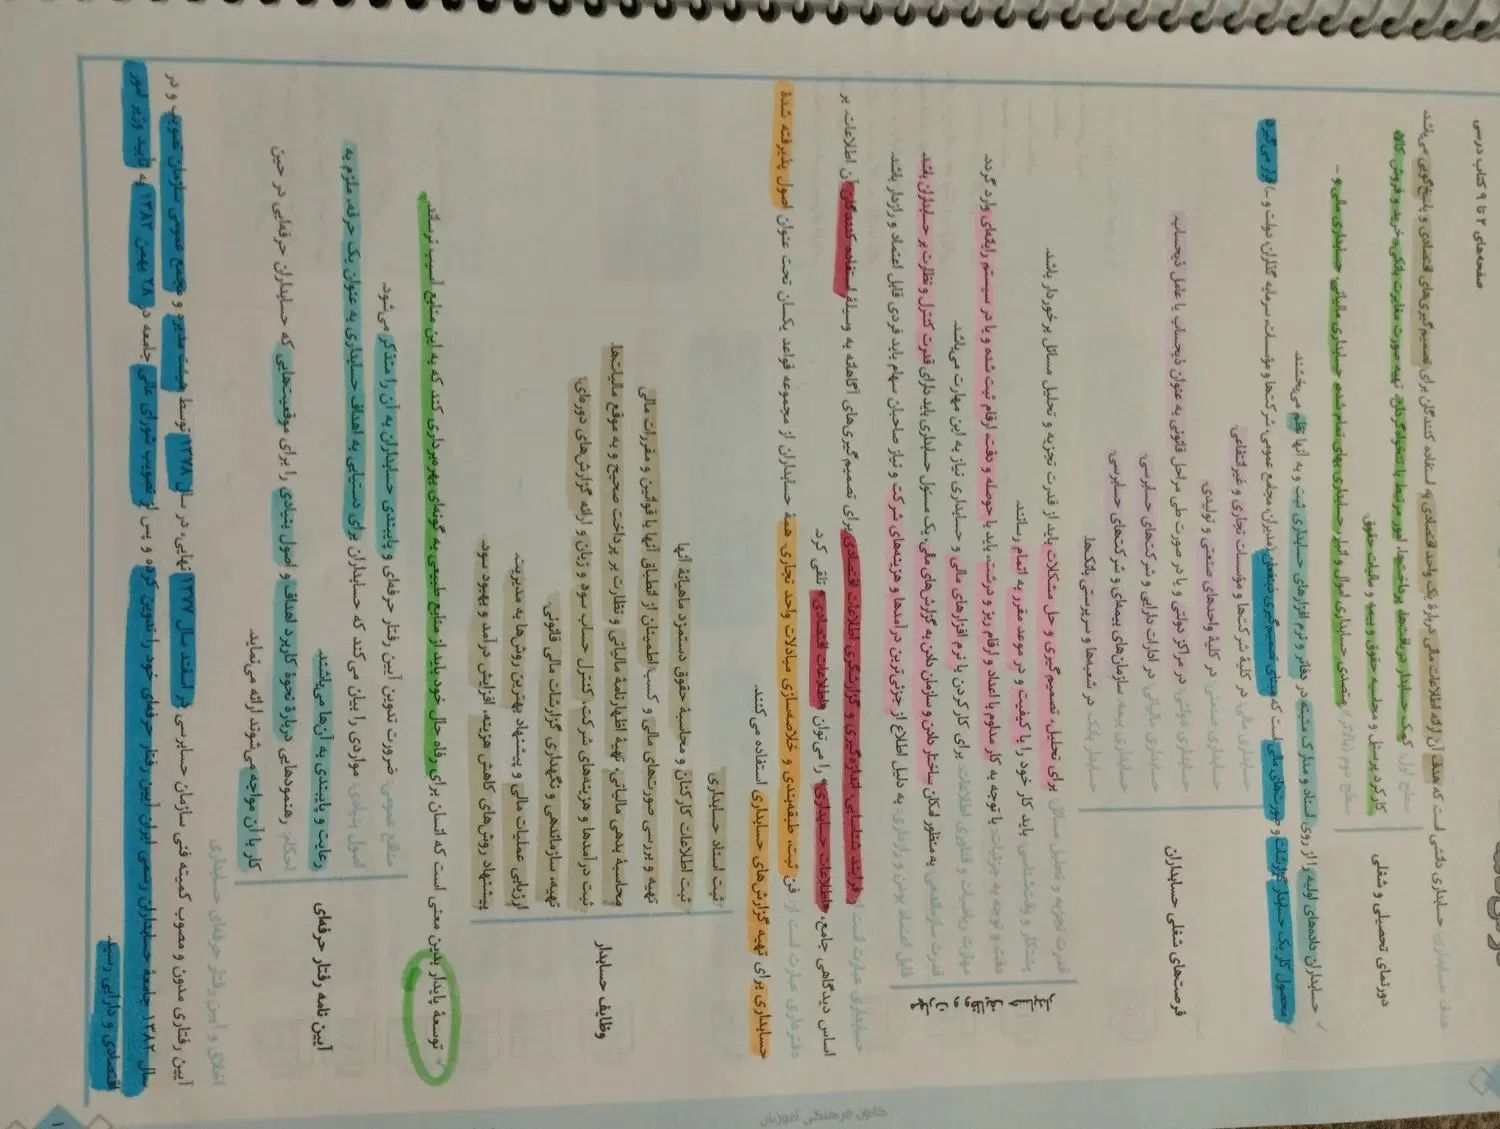 صفحه‌های ۲ تا ۹ کتاب درسی
هدف حسابداری: حسابداری دانشی است که هدف آن ارائه اطلاعات مالی دربارهٔ یک واحد اقتصادی به استفاده کنندگان برای تصمیم‌گیری‌های اقتصادی و پاسخ‌گویی می‌باشد.
دورنمای تحصیلی و شغلی
سطح اول: کمک حسابدار دریافت‌ها، پرداخت‌ها، امور مرتبط با تنخواه‌گردان، تهیه صورت مغایرت بانکی، خرید و فروش کالا،
کارکرد پرسنل و محاسبه حقوق و بیمه و مالیات حقوق
سطح دوم (بالاتر): متصدی حسابداری اموال و انبار، حسابداری بهای تمام شده، حسابداری مالیاتی، حسابداری مالی و ...
✓ حسابداران، داده‌های اولیه را از روی اسناد و مدارک مثبته در دفاتر و نرم افزارهای حسابداری ثبت و به آنها نظم می‌بخشند.
✓ محصول کار یک حسابدار گزارشات و صورت‌های مالی است که مبنای تصمیم‌گیری ذینفعان (مدیران، مجامع عمومی، شرکت‌ها و مؤسسات، سرمایه گذاران، دولت و ...) قرار می‌گیرد.
فرصت‌های شغلی حسابداران
حسابداری مالی: در کلیهٔ شرکت‌ها و مؤسسات تجاری و غیرانتفاعی.
حسابداری صنعتی: در کلیهٔ واحدهای صنعتی و تولیدی.
حسابداری دولتی: در مراکز دولتی و یا در صورت طی مراحل قانونی به عنوان ذیحساب یا عامل ذیحساب.
حسابداری مالیاتی: در ادارات دارایی و شرکت‌های حسابرسی.
حسابداری بیمه: سازمان‌های بیمه‌ای و شرکت‌های حسابرسی.
حسابدار بانک: در شعبه‌ها و سرپرستی بانک‌ها.
قدرت تجزیه و تحلیل مسائل: برای تحلیل، تصمیم‌گیری و حل مشکلات باید از قدرت تجزیه و تحلیل مسائل برخوردار باشد.
پشتکار و وقت‌شناسی: باید کار خود را با کیفیت و در موعد مقرر به اتمام رسانند.
دقت و توجه به جزئیات: با توجه به کار مداوم با اعداد و ارقام ریز و درشت، باید با حوصله و دقت، ارقام ثبت شده و یا در سیستم رایانه‌ای وارد گردد.
مهارت ریاضیات و فناوری اطلاعات: برای کار کردن با نرم افزارهای مالی و حسابداری نیاز به این مهارت می‌باشد.
قدرت سازماندهی: به منظور امکان ساختار دادن و سازمان دادن به گزارش‌های مالی، یک مسئول حسابداری باید دارای قدرت کنترل و نظارت بر حسابداران باشد.
قابل اعتماد بودن و رازداری: به دلیل اطلاع از جزئی‌ترین درآمدها و هزینه‌های شرکت و نیاز صاحبان سهام باید فردی قابل اعتماد و رازدار باشد.
حسابداری عبارت است از: فرایند شناسایی، اندازه‌گیری و گزارشگری اطلاعات اقتصادی برای تصمیم‌گیری‌های آگاهانه به وسیلهٔ استفاده کنندگان آن اطلاعات. بر
اساس دیدگاهی جامع، «اطلاعات حسابداری» را می‌توان «اطلاعات اقتصادی» تلقی کرد.
دفترداری عبارت است از: فن ثبت، طبقه‌بندی و خلاصه‌سازی مبادلات واحد تجاری. همهٔ حسابداران از مجموعه قواعد یکسان تحت عنوان اصول پذیرفته شدهٔ
حسابداری برای تهیه گزارش‌های حسابداری استفاده می‌کنند.
وظایف حسابدار
ثبت اسناد حسابداری
ثبت اطلاعات کارکنان و محاسبهٔ حقوق دستمزد ماهیانهٔ آنها
تهیه و بررسی صورت‌های مالی و کسب اطمینان از انطباق آنها با قوانین و مقررات مالی
محاسبهٔ بدهی مالیاتی، تهیهٔ اظهارنامهٔ مالیاتی و نظارت بر پرداخت صحیح و به موقع مالیات‌ها.
ثبت درآمدها و هزینه‌های شرکت، کنترل حساب سود و زیان و ارائه گزارش‌های دوره‌ای.
تهیه، سازماندهی و نگهداری گزارشات مالی قانونی.
ارزیابی عملیات مالی و پیشنهاد بهترین روش‌ها به مدیریت.
پیشنهاد روش‌های کاهش هزینه، افزایش درآمد و بهبود سود.
✓ توسعهٔ پایدار بدین معنی است که انسان برای رفاه حال خود باید از منابع طبیعی به گونه‌ای بهره‌برداری کند که به این منابع آسیب نرساند.
آیین نامه رفتار حرفه‌ای
منافع عمومی: ضرورت تدوین آیین رفتار حرفه‌ای و پایبندی حسابداران به آن را متذکر می‌شود.
اصول بنیادی: مواردی را بیان می‌کند که حسابداران برای دستیابی به اهداف حسابداری به عنوان یک حرفه، ملزم به
رعایت و پایبندی به آن‌ها می‌باشند.
احکام: رهنمودهایی دربارهٔ نحوهٔ کاربرد اهداف و اصول بنیادی را برای موقعیت‌هایی که حسابداران حرفه‌ای در حین
کار با آن مواجه می‌شوند ارائه می‌نماید.
اخلاق و آیین رفتار حرفه‌ای حسابداری
آیین رفتاری مدون و مصوب کمیته فنی سازمان حسابرسی در اسفند سال ۱۳۷۷ نهایی، در سال ۱۳۷۸ توسط هیئت مدیره و مجمع عمومی سازمان تصویب و در
سال ۱۳۸۲ جامعهٔ حسابداران رسمی ایران آیین رفتار حرفه‌ای خود را تدوین کرده و پس از تصویب شورای عالی جامعه در ۲۸ بهمن ۱۳۸۲ به تأیید وزیر امور
اقتصادی و دارایی رسید.
کانون فرهنگی آموزش